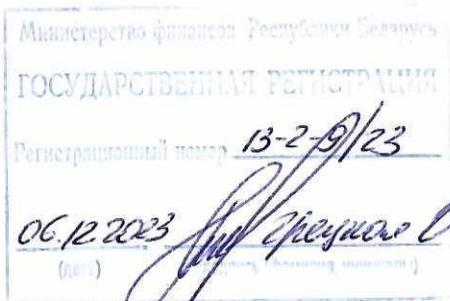 Министерство финансов Республики Беларусь
ГОСУДАРСТВЕННАЯ РЕГИСТРАЦИЯ
Регистрационный номер 13-2-9/23
06.12.2023
(дата) (подпись, фамилия, инициалы)